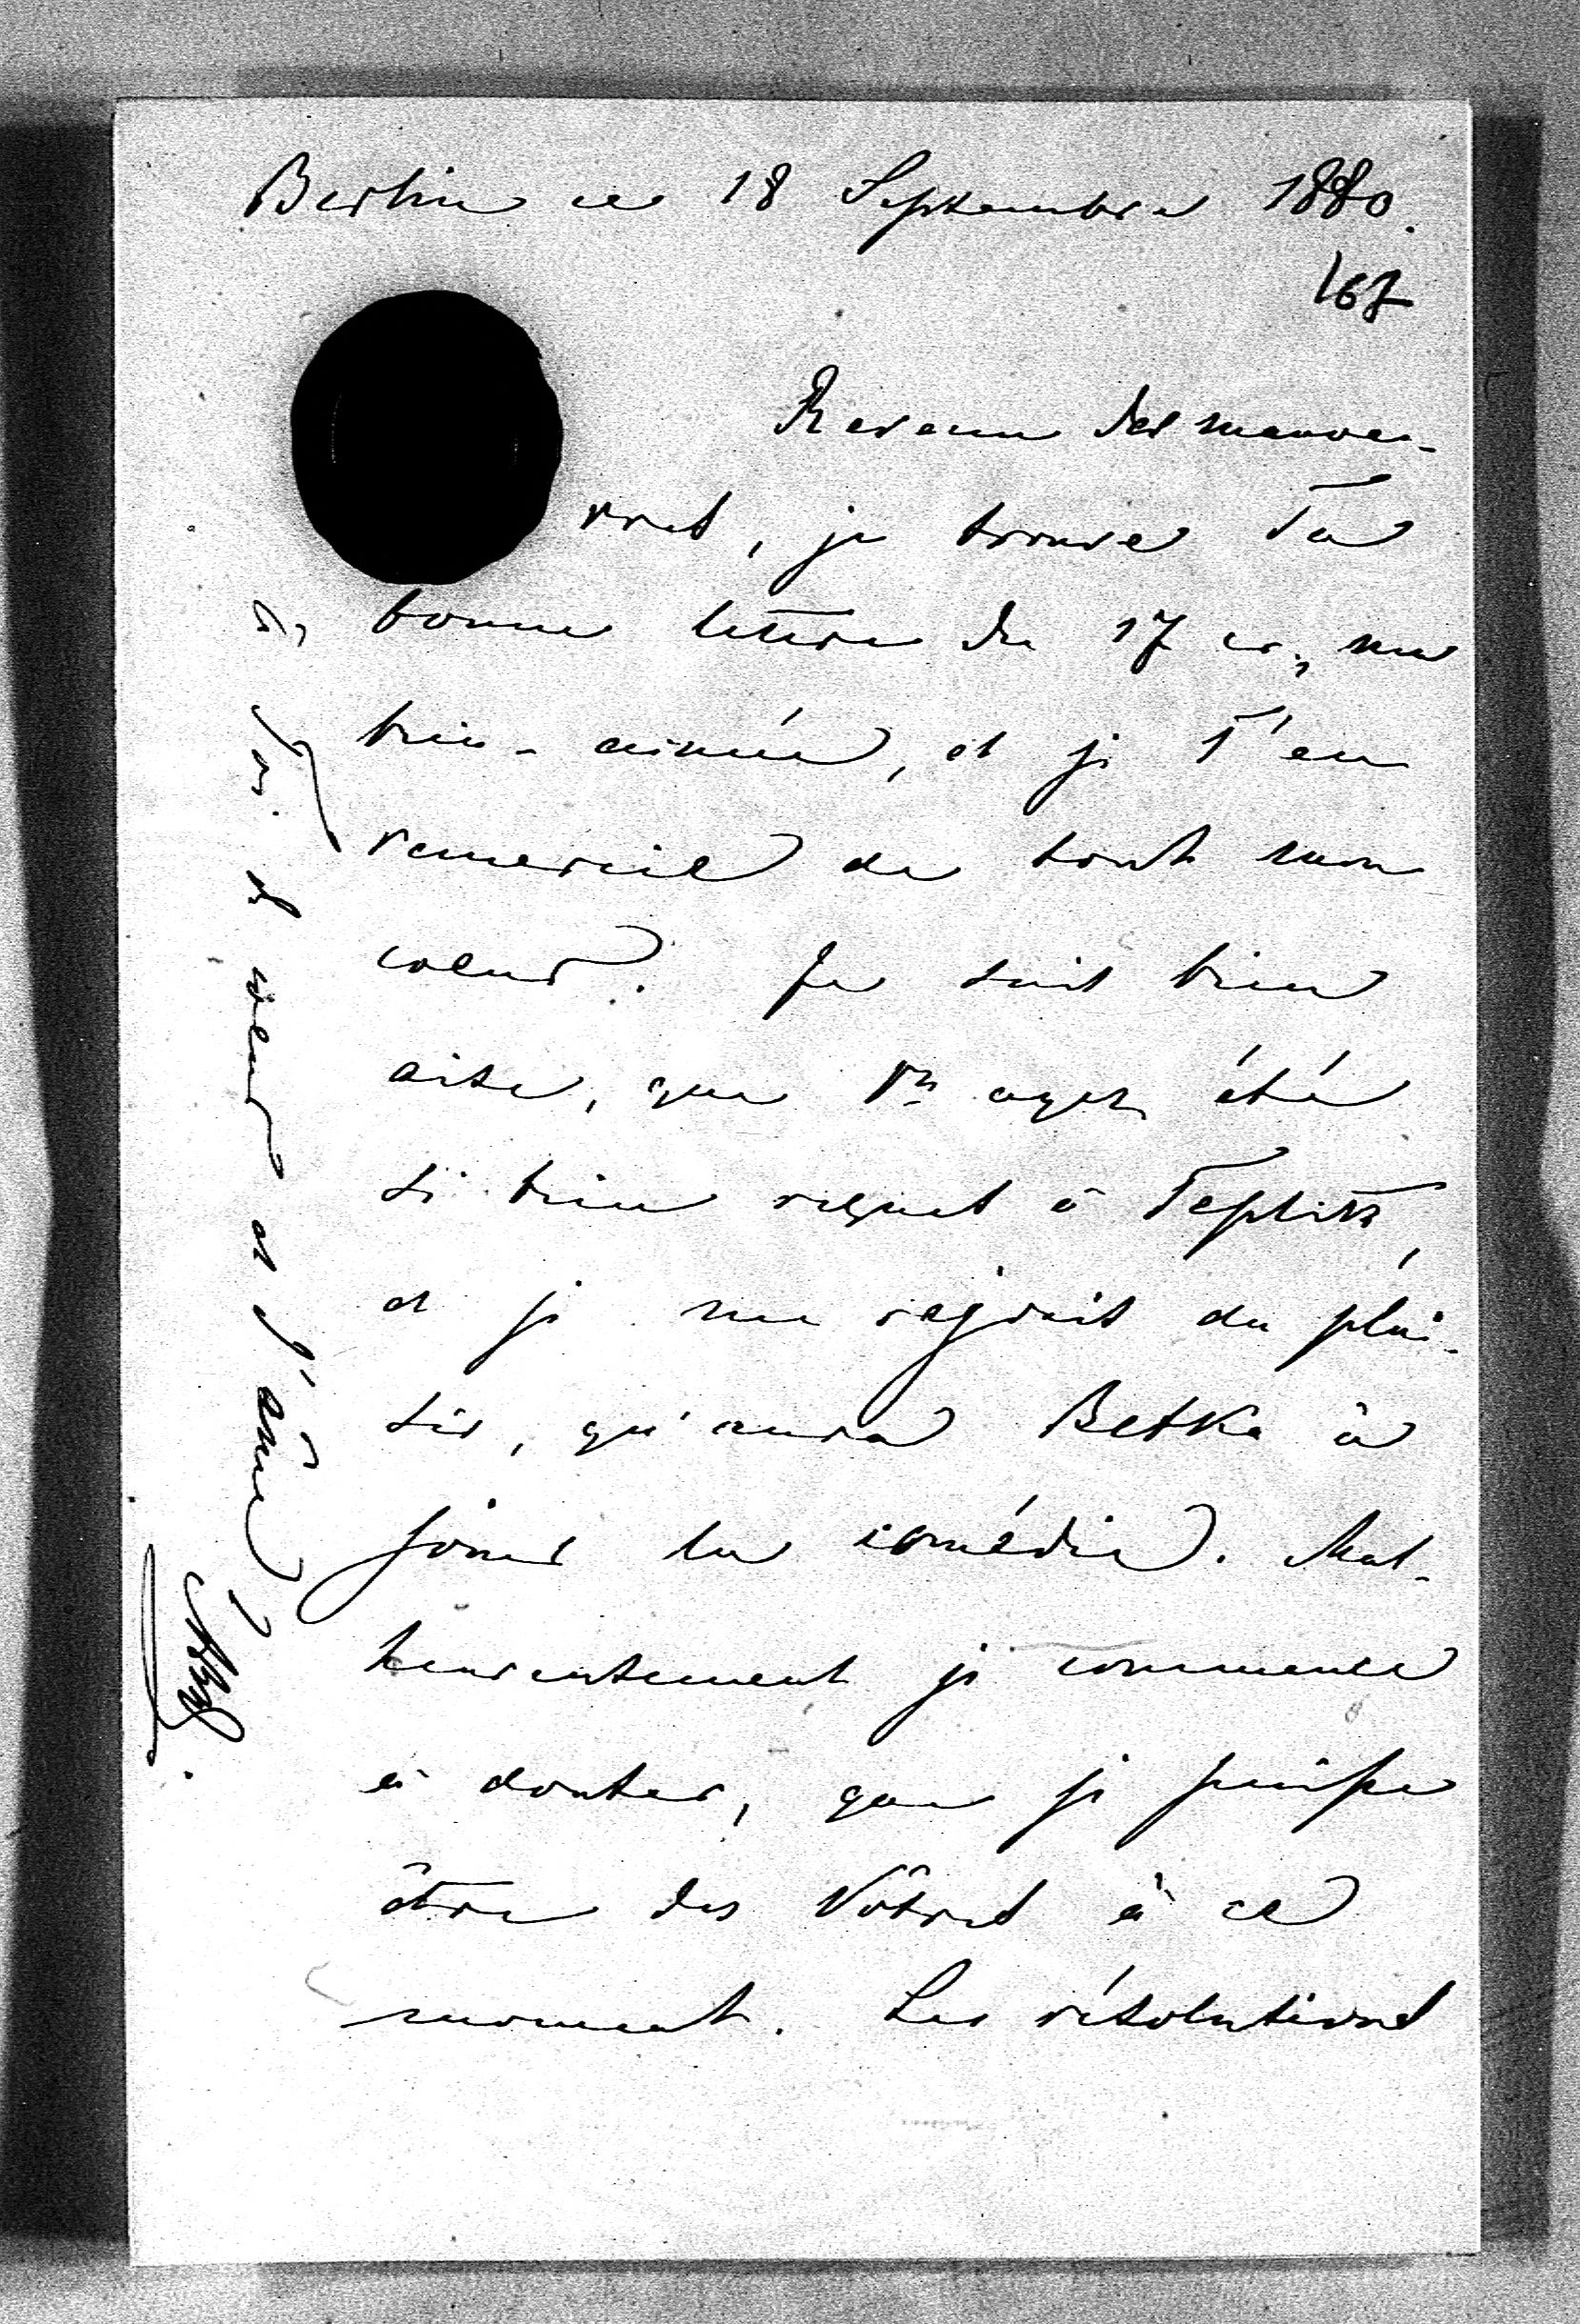 Berlin ce 18 Septembre 1880.
167
Revenu des manoeu-
vres, je trouve Ta
bonne lettre du 17 cr, ma
bien-aimée, et je T'en
remercie de tout mon
coeur. Je suis bien
aise, que Vs ayez été
si bien reçues à Teplitz,
et je me rejouis du plai-
sir, qu'aura Betka à
jouer la comédie. Mal-
heureusement je commence
à douter, que je puisse
être des Vôtres à ce
moment. Les résolutions
de coeur et d'âme